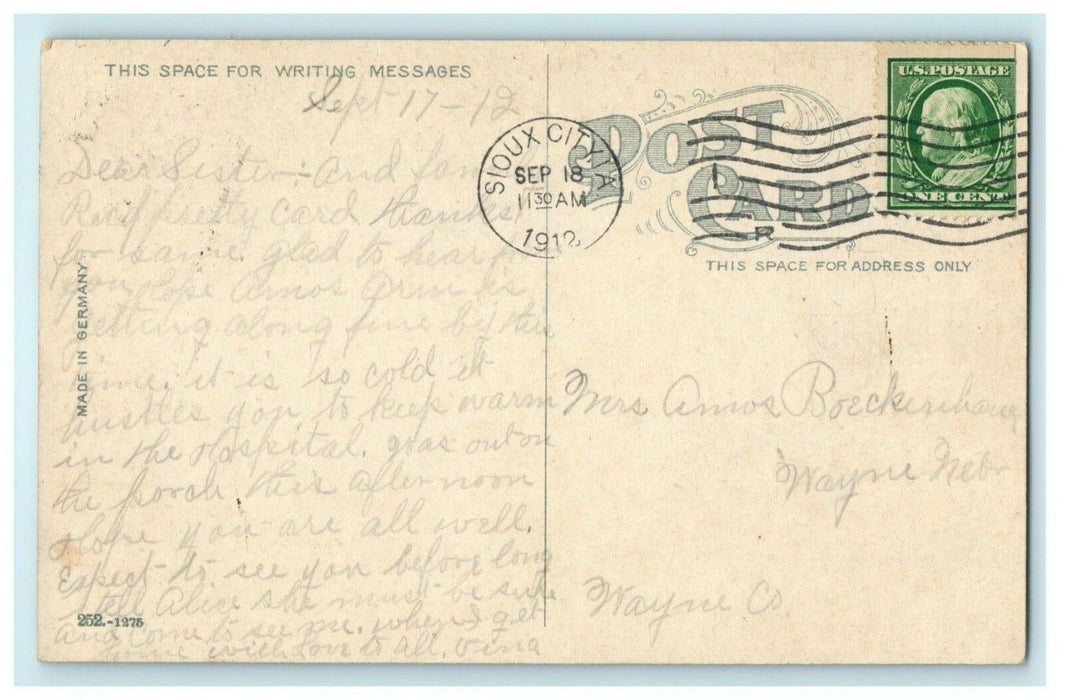 THIS SPACE FOR WRITING MESSAGES
Sept 17-12
Dear Sister:- and fam
Recd pretty card thanks
for same glad to hear
you hope Amos Arm is
getting along fine by this
time. it is so cold it
hustles you to keep warm
in the Hospital. was out on
the porch this afternoon
Hope you are all well.
Expect to see you before long
tell Alice she must be sure
and come to see me. when I get
home with love to all.
MADE IN GERMANY
252.-1275
POST CARD
SIOUX CITY, IA
SEP 18
11 30 AM
1912
1
R
U.S. POSTAGE
ONE CENT
THIS SPACE FOR ADDRESS ONLY
Mrs Amos
Wayne Nebr
Wayne Co